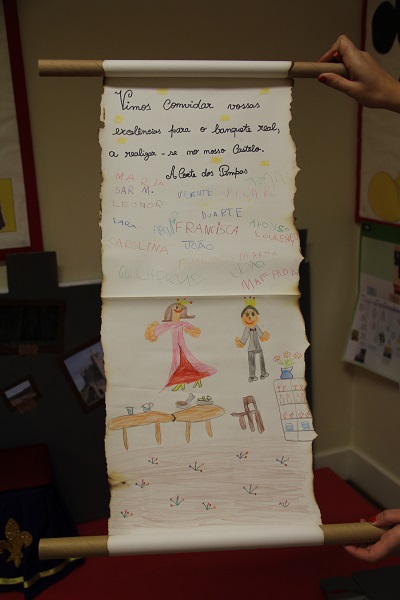 Vimos convidar vossas
excelências para o banquete real,
a realizar-se no nosso Castelo.
A Corte dos Pimpas
MARIA
SAR M. VICENTE
LEONOR
DUARTE
FRANCISCA AFONSO
LOURENÇO
CAROLINA JOÃO
MAFALDA